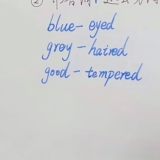 blue-eyed
grey-haired
good-tempered